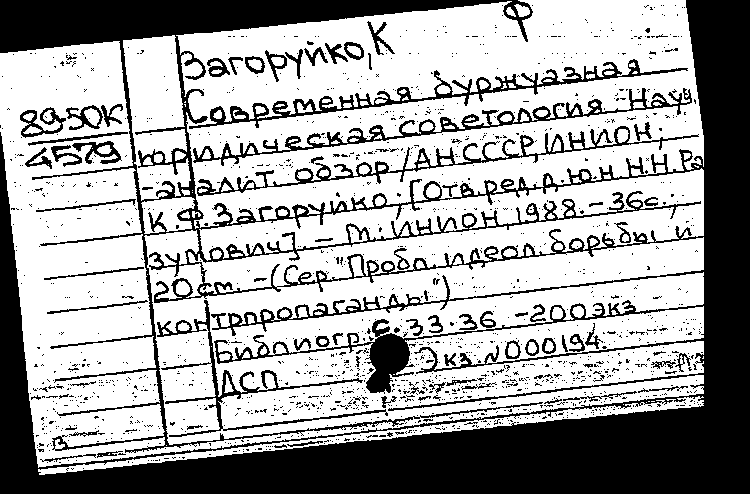 Загоруйко, К Ф
89-50К
4579
Современная буржуазная
юридическая советология. Науч.
-аналит. обзор / АН СССР, ИНИОН;
К.Ф. Загоруйко; [Отв. ред. д.ю.н Н.Н. Ра
зумович]. - М.: ИНИОН, 1988. - 36с.;
20см. - (Сер. "Пробл. идеол. борьбы и
контрпропаганды")
Библиогр. с. 33-36. - 200 экз
ДСП. Экз. N000194.